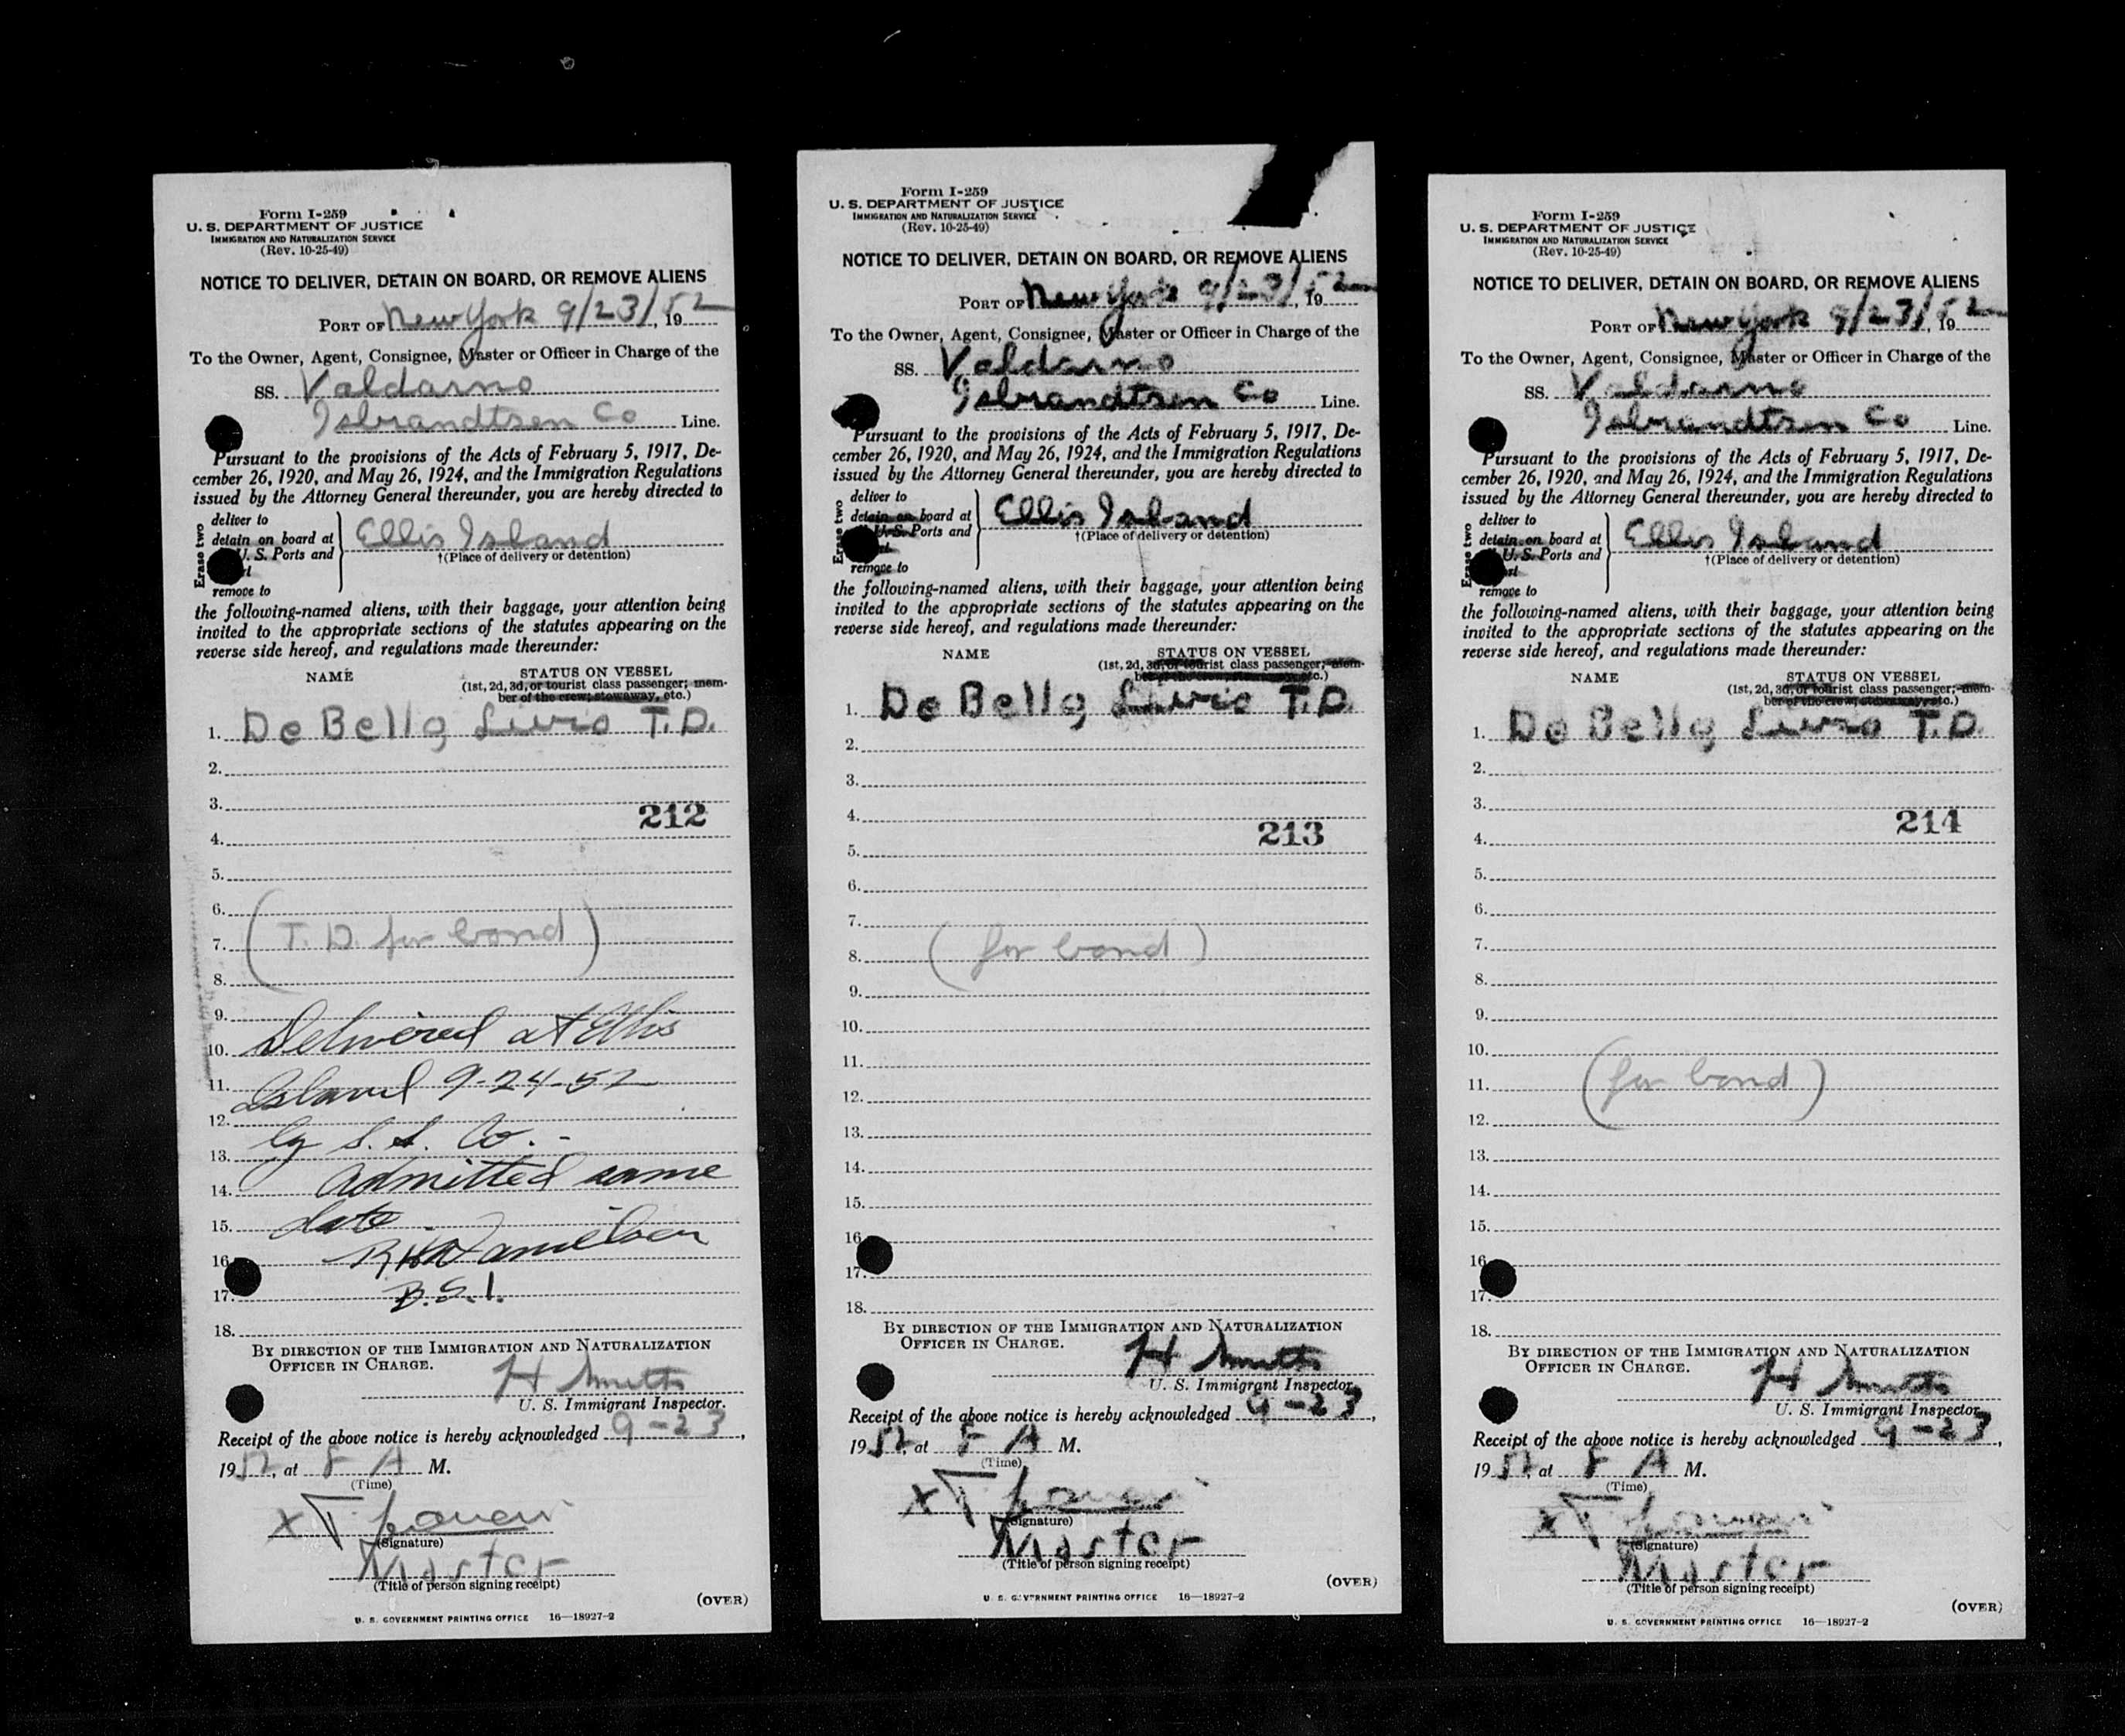 Form I-259
U. S. DEPARTMENT OF JUSTICE
IMMIGRATION AND NATURALIZATION SERVICE
(Rev. 10-25-49)
NOTICE TO DELIVER, DETAIN ON BOARD, OR REMOVE ALIENS
PORT OF New York 9/23/, 1952
To the Owner, Agent, Consignee, Master or Officer in Charge of the
SS. Valdarno
Isbrandtsen Co Line.
Pursuant to the provisions of the Acts of February 5, 1917, De-
cember 26, 1920, and May 26, 1924, and the Immigration Regulations
issued by the Attorney General thereunder, you are hereby directed to
Erase two
deliver to
detain on board at
U. S. Ports and
remove to
Ellis Island
†(Place of delivery or detention)
the following-named aliens, with their baggage, your attention being
invited to the appropriate sections of the statutes appearing on the
reverse side hereof, and regulations made thereunder:
NAME STATUS ON VESSEL
(1st, 2d, 3d, or tourist class passenger; mem-
ber of the crew; stowaway, etc.)
1. De Bello Livio T.D.
2.
3.
212
4.
5.
6.
7. (T. D. for bond)
8.
9.
10. Delivered at Ellis
11. Island 9-24-52
12.
by S. S. Co. -
13.
14. admitted same
15. date.
16.
17. B.S.I.
18.
BY DIRECTION OF THE IMMIGRATION AND NATURALIZATION
OFFICER IN CHARGE.
H Smith
U. S. Immigrant Inspector.
Receipt of the above notice is hereby acknowledged 9-23,
1952, at 8 A M.
(Time)
X
(Signature)
Master
(Title of person signing receipt)
(OVER)
U. S. GOVERNMENT PRINTING OFFICE 16—18927-2
Form I-259
U. S. DEPARTMENT OF JUSTICE
IMMIGRATION AND NATURALIZATION SERVICE
(Rev. 10-25-49)
NOTICE TO DELIVER, DETAIN ON BOARD, OR REMOVE ALIENS
PORT OF New York 9/23/, 1952
To the Owner, Agent, Consignee, Master or Officer in Charge of the
SS. Valdarno
Isbrandtsen Co Line.
Pursuant to the provisions of the Acts of February 5, 1917, De-
cember 26, 1920, and May 26, 1924, and the Immigration Regulations
issued by the Attorney General thereunder, you are hereby directed to
Erase two
deliver to
detain on board at
U. S. Ports and
remove to
Ellis Island
†(Place of delivery or detention)
the following-named aliens, with their baggage, your attention being
invited to the appropriate sections of the statutes appearing on the
reverse side hereof, and regulations made thereunder:
NAME STATUS ON VESSEL
(1st, 2d, 3d, or tourist class passenger; mem-
ber of the crew; stowaway, etc.)
1. De Bello Livio T.D.
2.
3.
4.
213
5.
6.
7.
8. (for bond)
9.
10.
11.
12.
13.
14.
15.
16.
17.
18.
BY DIRECTION OF THE IMMIGRATION AND NATURALIZATION
OFFICER IN CHARGE.
H Smith
U. S. Immigrant Inspector.
Receipt of the above notice is hereby acknowledged 9-23,
1952, at 8 A M.
(Time)
X
(Signature)
Master
(Title of person signing receipt)
(OVER)
U. S. GOVERNMENT PRINTING OFFICE 16—18927-2
Form I-259
U. S. DEPARTMENT OF JUSTICE
IMMIGRATION AND NATURALIZATION SERVICE
(Rev. 10-25-49)
NOTICE TO DELIVER, DETAIN ON BOARD, OR REMOVE ALIENS
PORT OF New York 9/23/, 1952
To the Owner, Agent, Consignee, Master or Officer in Charge of the
SS. Valdarno
Isbrandtsen Co Line.
Pursuant to the provisions of the Acts of February 5, 1917, De-
cember 26, 1920, and May 26, 1924, and the Immigration Regulations
issued by the Attorney General thereunder, you are hereby directed to
Erase two
deliver to
detain on board at
U. S. Ports and
remove to
Ellis Island
†(Place of delivery or detention)
the following-named aliens, with their baggage, your attention being
invited to the appropriate sections of the statutes appearing on the
reverse side hereof, and regulations made thereunder:
NAME STATUS ON VESSEL
(1st, 2d, 3d, or tourist class passenger; mem-
ber of the crew; stowaway, etc.)
1. De Bello Livio T.D.
2.
3.
214
4.
5.
6.
7.
8.
9.
10.
11. (for bond)
12.
13.
14.
15.
16.
17.
18.
BY DIRECTION OF THE IMMIGRATION AND NATURALIZATION
OFFICER IN CHARGE.
H Smith
U. S. Immigrant Inspector.
Receipt of the above notice is hereby acknowledged 9-23,
1952, at 8 A M.
(Time)
X
(Signature)
Master
(Title of person signing receipt)
(OVER)
U. S. GOVERNMENT PRINTING OFFICE 16—18927-2